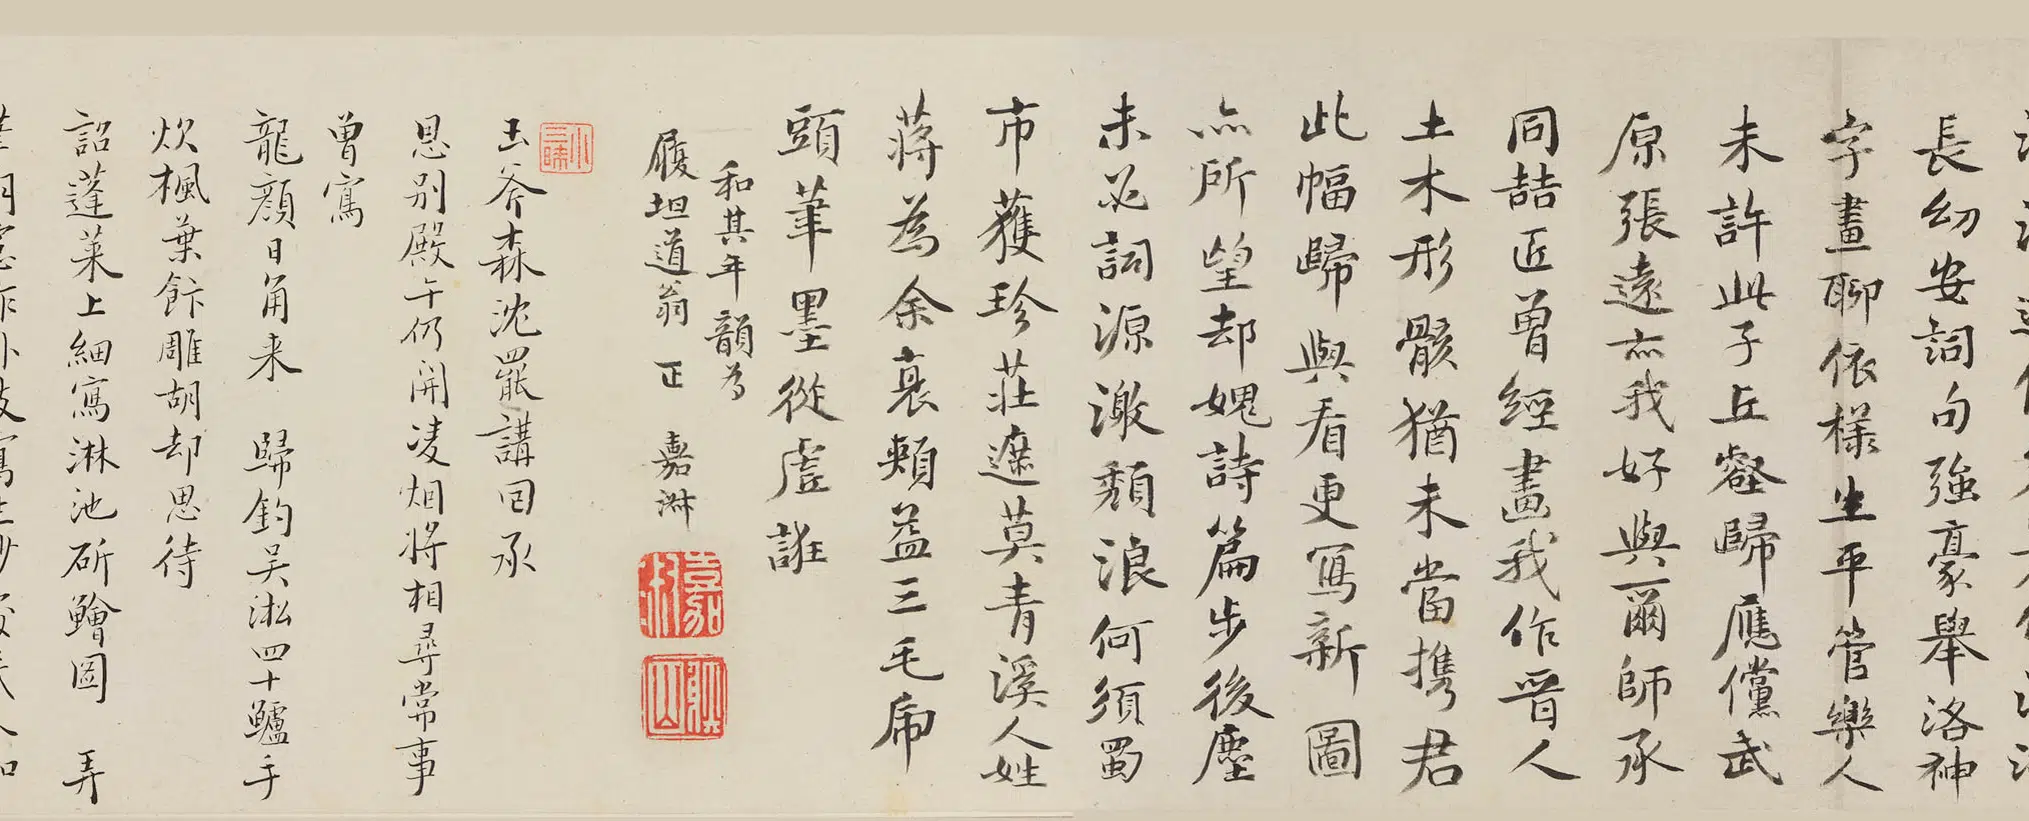 長幼安詞句強豪舉洛神
字畫聊依樣生平管樂人
未許此子丘壑歸應儻武
原張遠亦我好與爾師承
同詰匠曾經畫我作晉人
土木形骸猶未當攜君
此幅歸與看更寫新圖
亦所望却媿詩篇步後塵
未必詞源激頹浪何須蜀
市獲珍莊遮莫青溪人姓
蔣為余裏頰益三毛帋
頭筆墨從虛誑
和其年韻為
履坦道翁正 嘉淋
小三晞
玉斧森沈罷講回承
恩別殿午仍開凌烟將相尋常事
曾寫
龍顏日角来 歸釣吴淞四十鱸手
炊楓葉飰雕胡却思待
詔蓬莱上細寫淋池斫鱠圖 弄